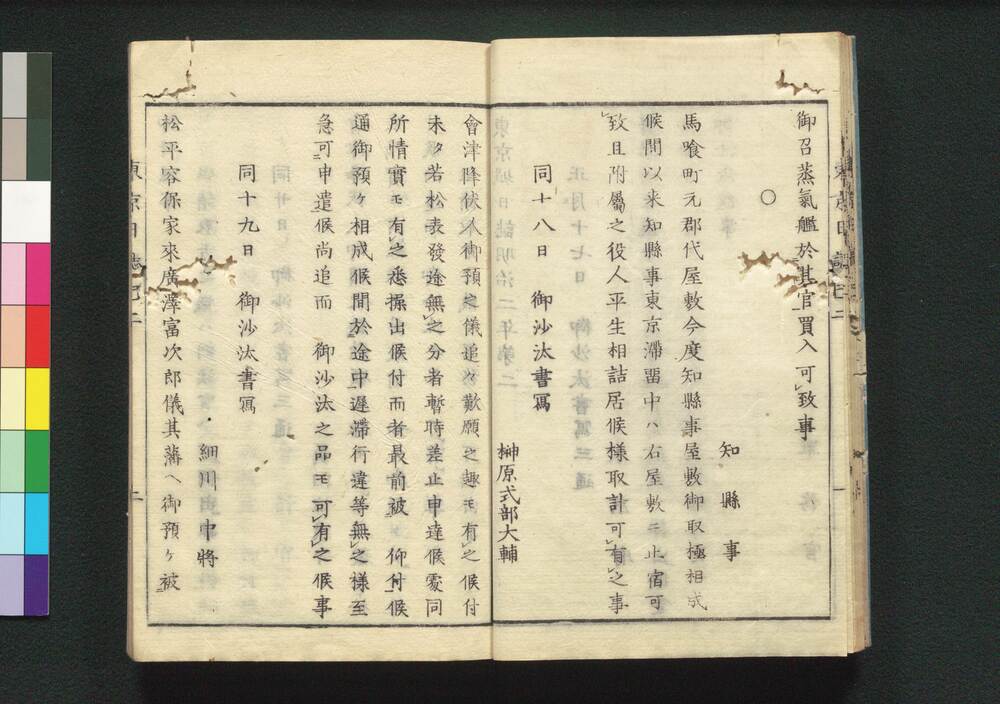 御召蒸氣艦於其官買入可致事
○
知縣事
馬喰町元郡代屋敷今度知縣事屋敷御取極相成
候間以来知縣事東京滞留中ハ右屋敷ニ止宿可
致且附屬之役人平生相詰居候様取計可有之事
同十八日　御沙汰書寫
榊原式部大輔
會津降伏人御預之儀追々歎願之趣モ有之候付
未タ若松表發途無之分者暫時差止申達候處同
所情實モ有之悉操出候付而者最前被　仰付候
通御預ヶ相成候間於途中遅滞行違等無之様至
急可申遣候尚追而　御沙汰之品モ可有之候事
同十九日　御沙汰書寫
細川中将
松平容保家來廣澤富次郎儀其藩ヘ御預ヶ被
東京日誌己二